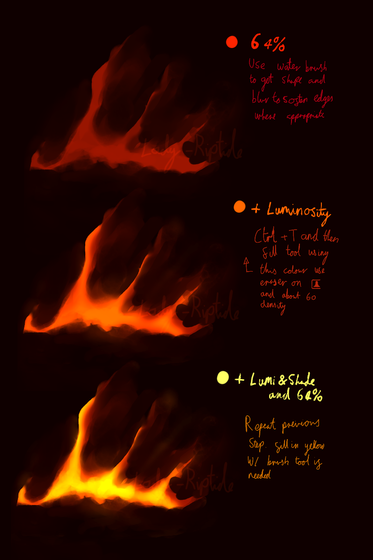 64%
Use water brush
to get shape and
blur to soften edges
where appropriate
+ Luminosity
Ctrl + T and then
fill tool using
this colour use
eraser on A
and about 60
density
+ Lumi & Shade
and 64%
Repeat previous
Step fill in yellow
w/ brush tool if
needed
-Riptide
-Riptide
-Riptide